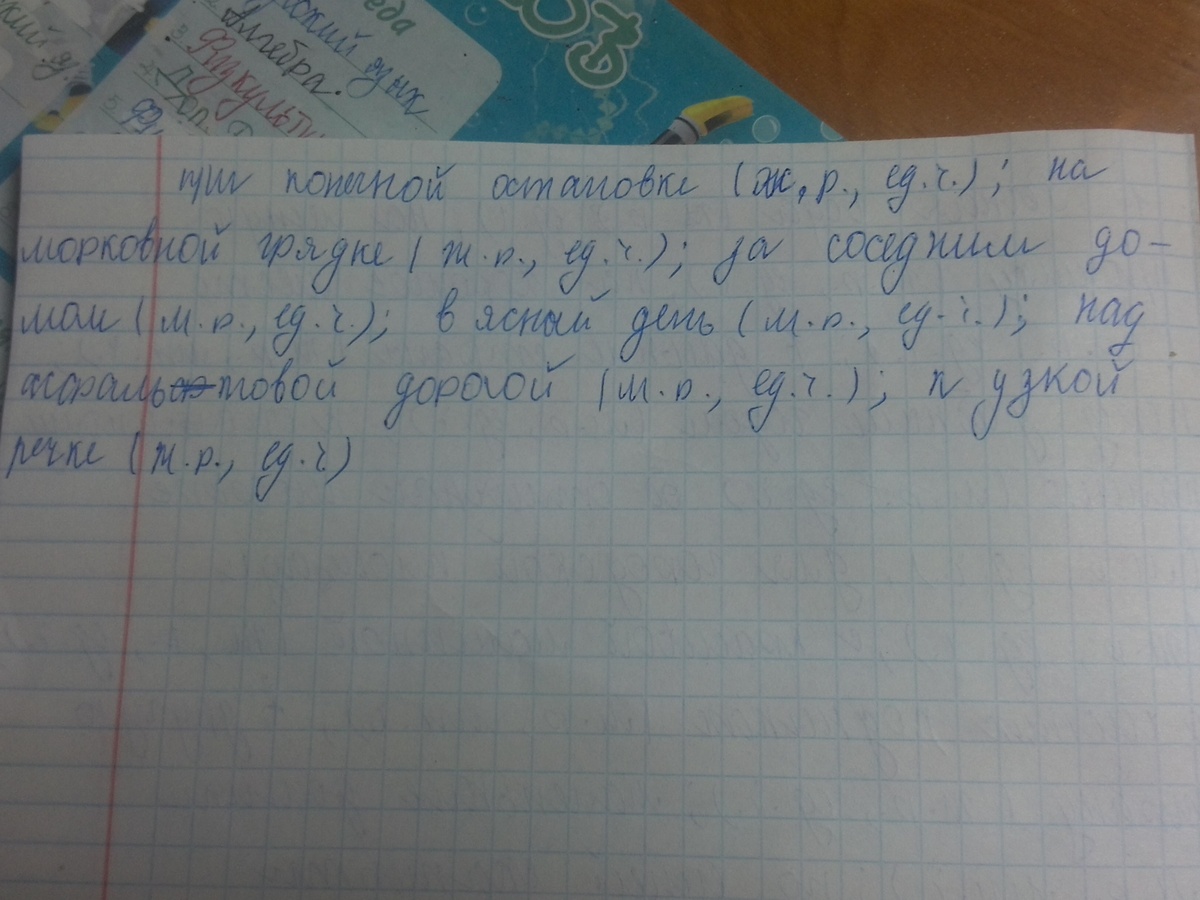 кий яз.
ский язык
Алгебра.
3 Физкульту
4. Доп.
5.
еда
при конечной остановке (ж.р., ед.ч.); на
морковной грядке (ж.р., ед.ч.); за соседним до-
мом (м.р., ед.ч.); в ясный день (м.р., ед.ч.); над
асфальтовой дорогой (м.р., ед.ч.); к узкой
речке (ж.р., ед.ч)